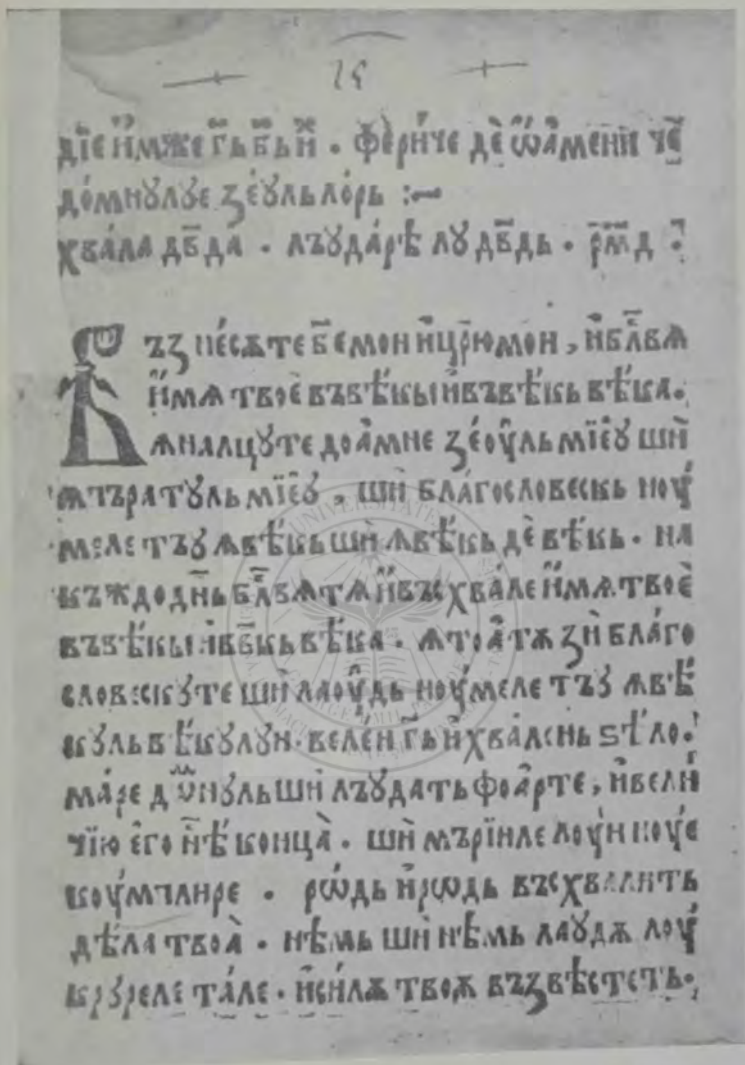 дїе и҆мже г҃ь б҃ь и҆̑ · фери́че де ѡ҆а́мени че҃
до́мнꙋлꙋе ꙁе́ꙋльло́рь :~
хва́ла дв҃да · лъꙋда́рѣ лꙋ дв҃дь · рм҃д ·
Въꙁнесѫте б҃емои и҆цр҃юмои , и҆бл҃вѧ
и҆мѧ твоѐ въвѣ́кы и҆въвѣ́кь вѣ́ка ·
ꙟналцꙋте доа́мне ꙁеоу́ль мїе́ꙋ шѝ
ꙟпъратꙋль мїе́ꙋ , шѝ благословескь ноу́
меле тъꙋ ꙟвѣ́кь шѝ ꙟвѣ́кь де вѣ́кь · на
къждо дн҃ь бл҃вѧтѧ и҆въсхва́ле и҆мѧ твоѐ
въвѣ́кы и҆вв҃кь вѣ́ка · ꙟтоа́тѫ ꙁѝ благо
словескꙋте шѝ лаоу́дь ноу́меле тъꙋ ꙟвѣ́
кꙋль вѣ́кꙋлꙋи · веле́и г҃ь и҆хва́лень ѕѣ́ло ·
ма́ре дѡ҃нꙋль шѝ лъꙋдать фоа́рте , и҆вели
чїю е҆го нѣ́ конца̀ · шѝ мърїиле лоу́и ноу́е
коу́мплире · рѡ́дь и҆рѡдь въсхвалить
дѣ́ла твоа̀ · нѣ́мь шѝ нѣ́мь лаꙋдѫ лоу́
крꙋреле та́ле · и҆силѫ твоѫ въꙁвѣстеть ·